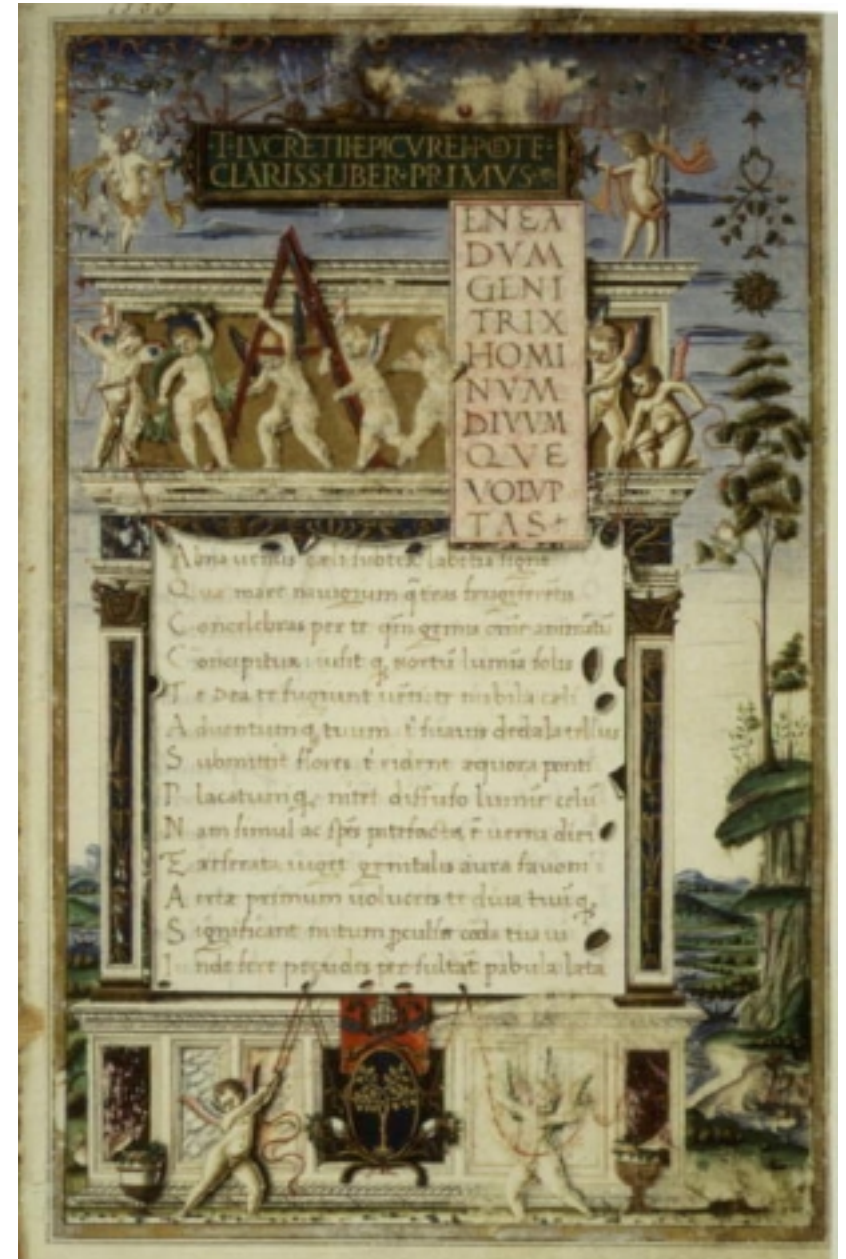 T·LVCRETII·EPICVREI·POETE·
CLARISS·LIBER·PRIMVS·
A
ENEA
DVM
GENI
TRIX
HOMI
NVM
DIVVM
QVE
VOLVP
TAS
Alma uenus cæli subter labētia signa
Quæ mare nauigerum q̄ terras
Concelebras per te qm̄ genus omē animātū
Concipitur uisit q, exortū lumina solis
Te Dea te fugiunt uēti te nubila cæli
Aduentum q, tuum t̄ suauis dedala tellus
Submittit flores t̄ rident æquora ponti
Placatum q, nitet diffuso lumine celū
Nam simul ac spēs patefacta ē uerna diei
Et reserata uiget genitalis aura fauoni
Aeriæ primum uolucris te diua tuū q,
Significant initum
Inde fere pecudes per sultāt pabula læta